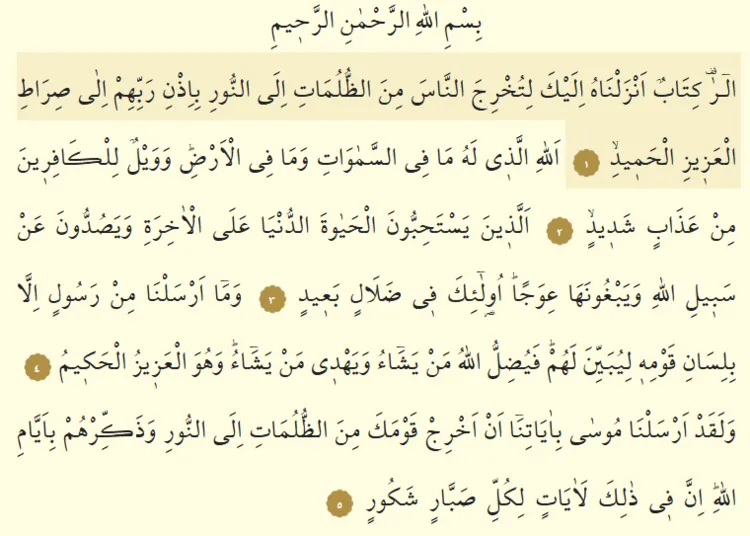 بِسْمِ اللهِ الرَّحْمٰنِ الرَّح۪يمِ
الٓرٰ۠ كِتَابٌ اَنْزَلْنَاهُ اِلَيْكَ لِتُخْرِجَ النَّاسَ مِنَ الظُّلُمَاتِ اِلَى النُّورِ بِاِذْنِ رَبِّهِمْ اِلٰى صِرَاطِ
الْعَز۪يزِ الْحَم۪يدِۙ ١ اَللهِ الَّذ۪ي لَهُ مَا فِي السَّمٰوَاتِ وَمَا فِي الْاَرْضِۜ وَوَيْلٌ لِلْكَافِر۪ينَ
مِنْ عَذَابٍ شَد۪يدٍۙ ٢ اَلَّذ۪ينَ يَسْتَحِبُّونَ الْحَيٰوةَ الدُّنْيَا عَلَى الْاٰخِرَةِ وَيَصُدُّونَ عَنْ
سَب۪يلِ اللهِ وَيَبْغُونَهَا عِوَجًاۜ اُو۬لٰٓئِكَ ف۪ي ضَلَالٍ بَع۪يدٍ ٣ وَمَٓا اَرْسَلْنَا مِنْ رَسُولٍ اِلَّا
بِلِسَانِ قَوْمِه۪ لِيُبَيِّنَ لَهُمْۜ فَيُضِلُّ اللهُ مَنْ يَشَٓاءُ وَيَهْد۪ي مَنْ يَشَٓاءُۜ وَهُوَ الْعَز۪يزُ الْحَك۪يمُ ٤
وَلَقَدْ اَرْسَلْنَا مُوسٰى بِاٰيَاتِنَٓا اَنْ اَخْرِجْ قَوْمَكَ مِنَ الظُّلُمَاتِ اِلَى النُّورِ وَذَكِّرْهُمْ بِاَيَّامِ
اللهِۜ اِنَّ ف۪ي ذٰلِكَ لَاٰيَاتٍ لِكُلِّ صَبَّارٍ شَكُورٍ ٥